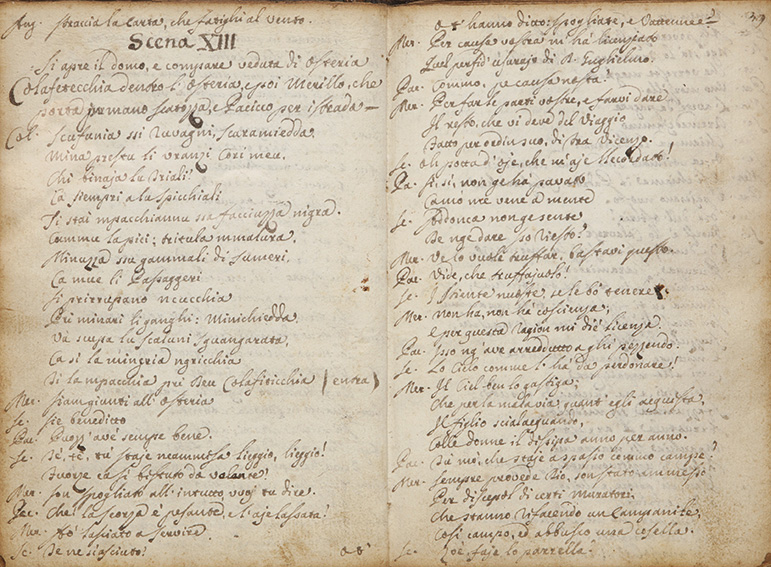 Ang. straccia la carta, che fatighi al vento.
Scena XIII
Si apre il domo, e compare veduta di Osteria
Colafetecchia dentro l'Osteria, e poi Merillo, che
porta in mano scatozza, e Pacicco per istrada
Col: Scafania ssi Ravagni, scaramiedda.
Mina prestu li vranzi Cori meu.
Chi binaja la Triali!
Ca siempri a la spicchiali
Ti stai mpacchiannu ssa facciuzza nigra.
Cammu la pici: tritula mmatura.
Minuzza ssu gammali di sumeri,
Ca mue li Passaggeri
Si prirrupano ncucchia
Pri minari li ganghi: Minichiedda.
Và scupa lu scaluni sguangarata,
Ca si la mineria ngricchia
Ti la mpacchia pri Deu Colafiticchia (entra)
Mer. siam giunti all'Osteria
Sc. sie benedetto
Pa. Puozz'ave sempre bene.
Sc. Tè, tè, tu staje neammisa lieggio, lieggio!
Fuorze ca si bistuto da valante!
Mer. son spogliato all'intutto vuoi tu dire.
Pac. Che la scorza è pesante, e l'aje lassata!
Mer. Hò lasciato a servire.
Sc. Te ne si asciuto!
o t'
39
o t'hanno ditto: spogliate, e vattenne?
Mer. Per causa vostra m'ha licenziato
Quel perfid'usurajo di D. Guglielmo.
Pac. Commo, pe causa nesta!
Mer. Per far le parti vostre, e farvi dare
Il resto, che vi deve del viaggio
Fatto per ordin suo, di stra Vicenzo.
Sc. oh potta d'oje, che m'aje llecordato!
Pa. si, si, non ge hà pavato
Camo mre vene a mente
Sc. Addonca non ge sente
De nge dare so riesto?
Mer. Ve lo vuole truffar, bastavi questo.
Pac. Vide, che truffajuolo!
Sc. I Stiente nueste, se le bò tenere.
Mer. non ha, non hà coscienza;
e per questa ragion mi diè licenza
Pac. Isso ng'ave arreddutto a ghi pezzendo.
Sc. Lo Cielo comme l'hà da perdonare!
Mer. Il Ciel ben lo gastiga;
Che per la mala via quant'egli acquista,
Il figlio scialacquando,
Colle donne il dissipa anno per anno.
Pac. Tu mò, che staje a spasso commo campe?
Mer. Sempre provede Dio, son stato ammesso
Per discepol di certi muratori
Che stanno rifacendo un Campanile
Così campo, ed abbusco una cosella.
Sc. Zoè, faje lo parrella?